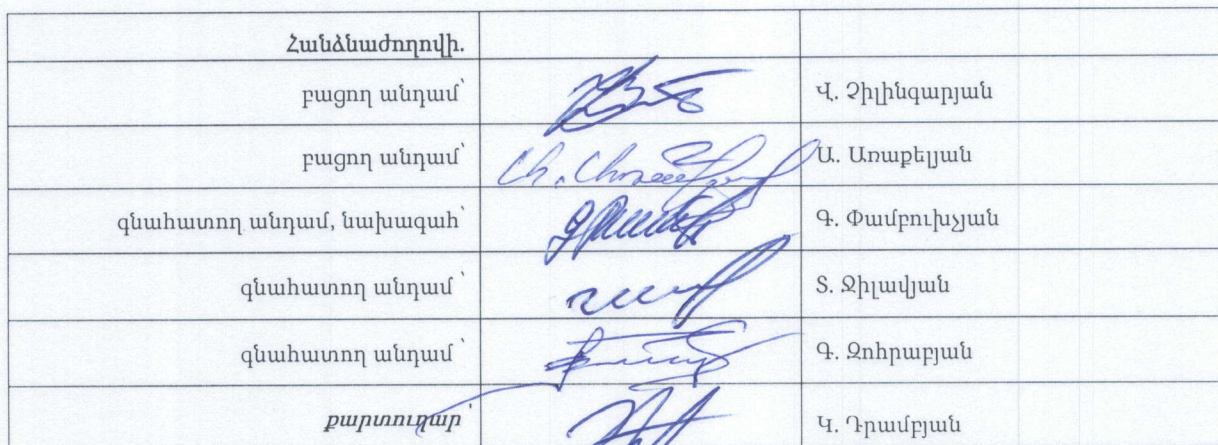 Հանձնաժողովի.
բացող անդամ՝ Վ. Չիլինգարյան
բացող անդամ՝ Ա. Առաքելյան
գնահատող անդամ, նախագահ՝ Գ. Փամբուխչյան
գնահատող անդամ ՝ Տ. Ջիլավյան
գնահատող անդամ ՝ Գ. Զոհրաբյան
քարտուղար ՝ Կ. Դրամբյան